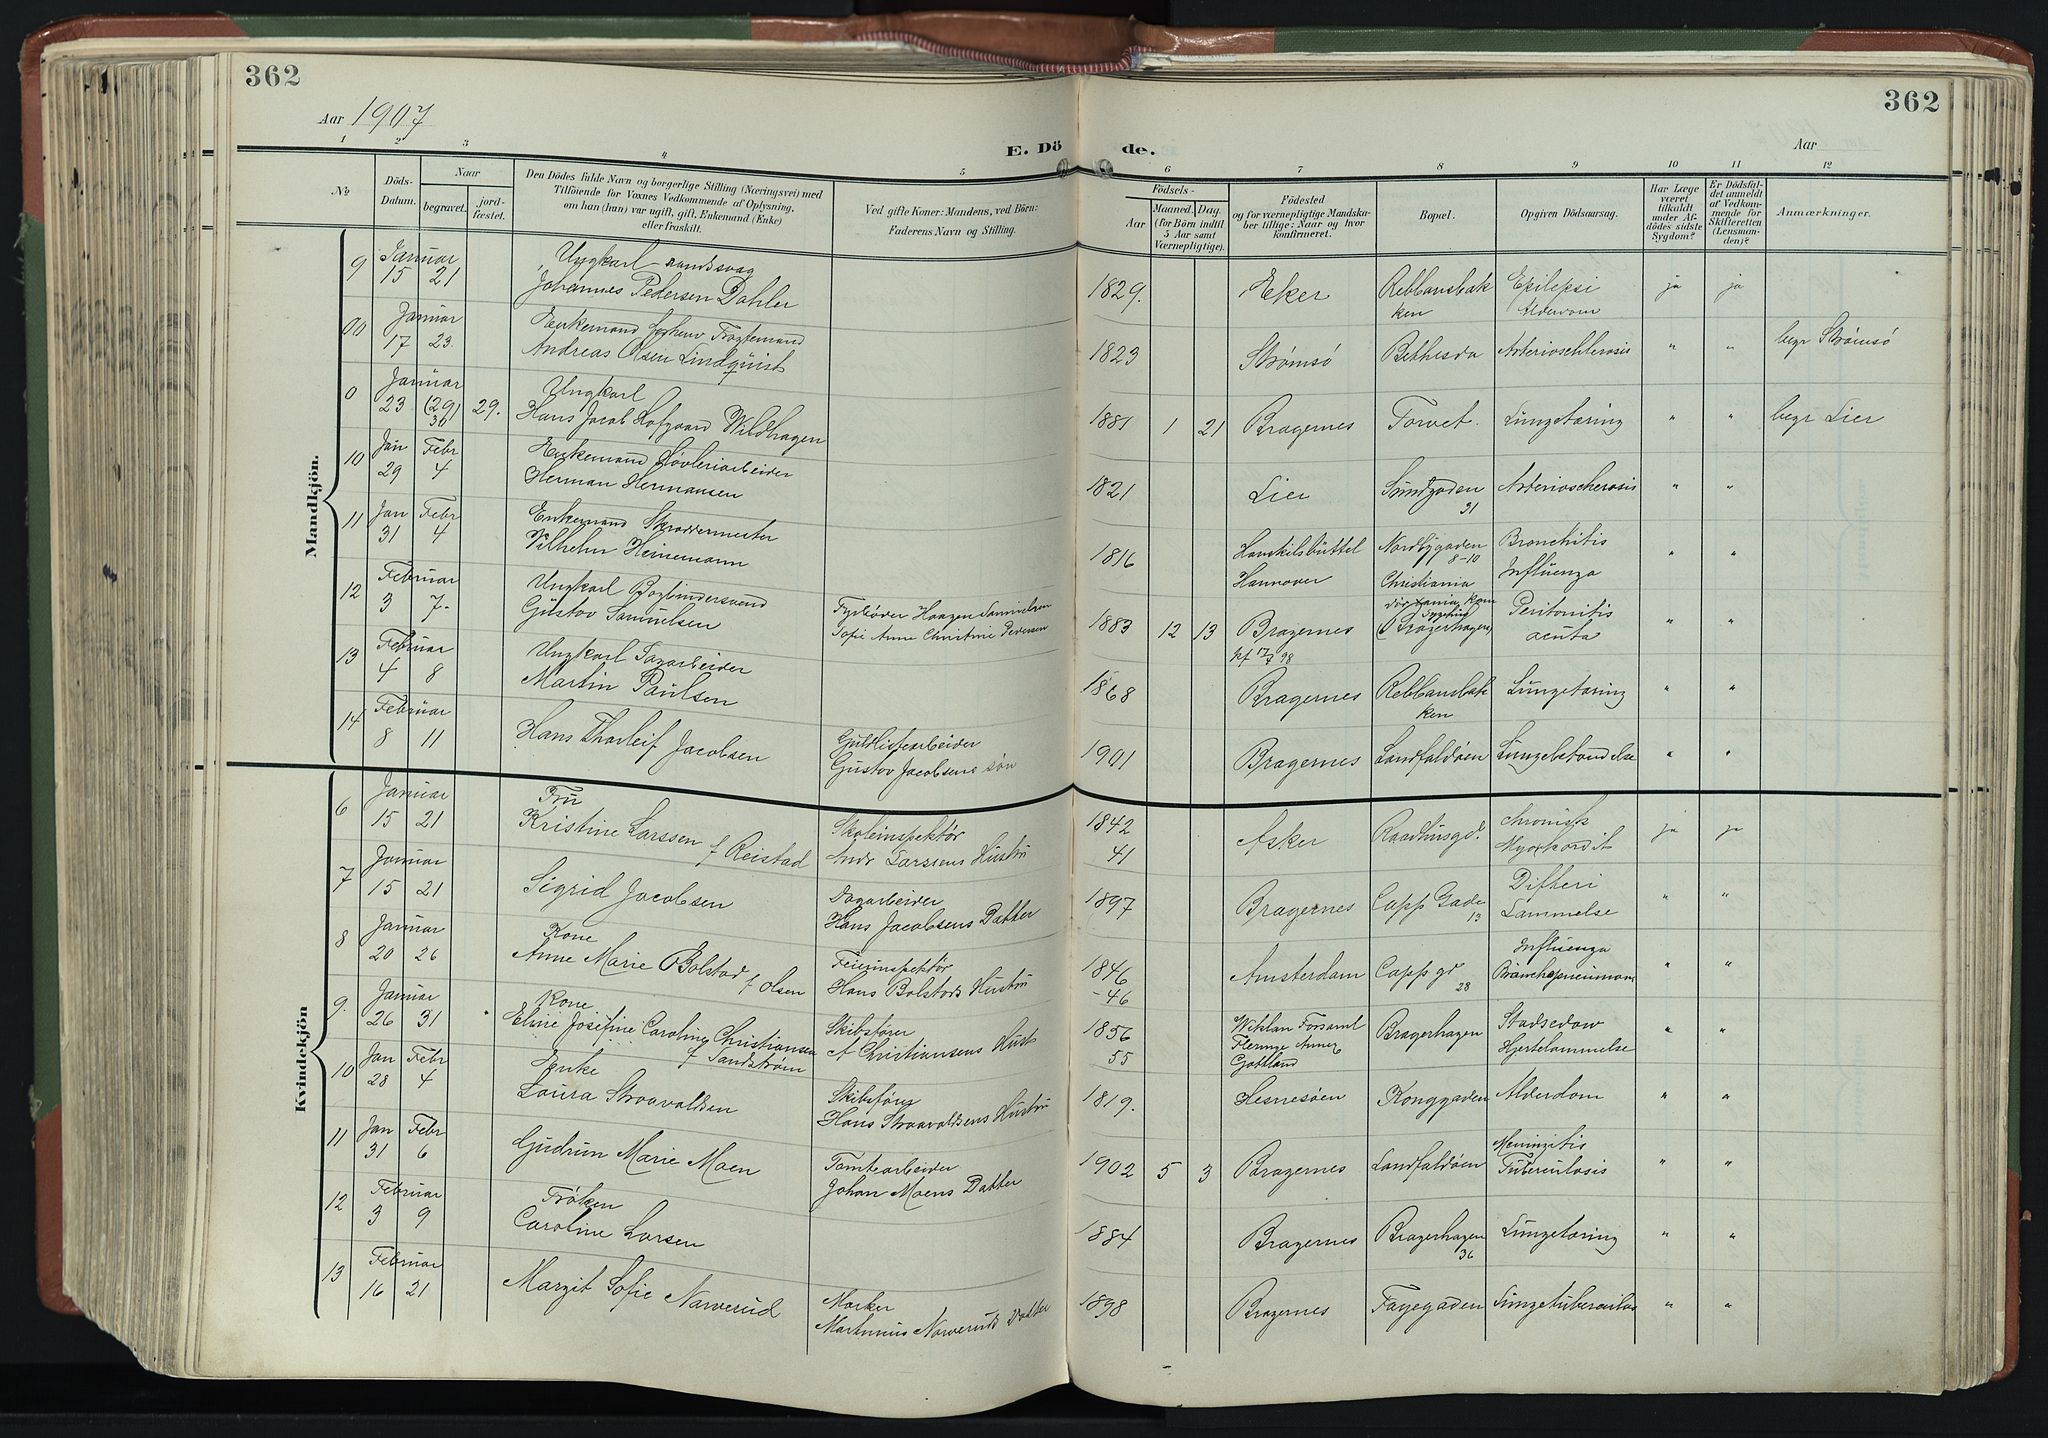 362
362
Aar 1907
Aar
E. Dö de.
1 2 3 4 5 6 7 8 9 10 11 12
No
Döds-Datum.
Naar
begravet.
jord-fæstet.
Den Dödes fulde Navn og borgerlige Stilling (Næringsvei) med
Tilföiende for Voxnes Vedkommende af Oplysning,
om han (hun) var ugift, gift, Enkemand (Enke)
eller fraskilt.
Ved gifte Koner: Mandens, ved Börn:
Faderens Navn og Stilling.
Födsels-
Aar
Maaned. Dag.
(for Börn indtil
5 Aar samt
Værnepligtige).
Födested
og for værnepligtige Mandska-
ber tillige: Naar og hvor
konfirmeret.
Bopæl.
Opgiven Dödsaarsag.
Har Læge
været
tilkaldt
under Af-
dödes sidste
Sygdom?
Er Dödsfal-
det anmeldt
af Vedkom-
mende for
Skifteretten
(Lensman-
den)?
Anmærkninger.
Mandkjön.
9 Januar 15 21 Ungkarl
Johannes Pedersen Dahler 1829. Eker Rebbansbakken Epilepsi ja ja
Januar 17 23. Enkemand
Andreas Olsen Lindquist 1823 Strømsø Bethesda " " begr Strømsø
0 Januar 23 (29) 30 29. Ungkarl
Hans Jacob Hofgaard Wildhagen 1881 1 21 Bragernes Torvet. Lungetæring " " begr Lier
10 Jan 29 Febr 4 Enkemand Høvleriarbeider
Herman Hermansen 1821 Lier Sundgaden 31 " "
11 Jan 31 Febr 4 Enkemand Skræddermester
Vilhelm Heinemann 1816 Hannover Nordbygaden 8-10 Bronchitis Influenza " "
12 Februar 3 7. Ungkarl Bogbindersvend
Gustav Samuelsen Fyrbøder Haagen Samuelsen
Sofie Anne Christine Pedersen 1883 12 13 Bragernes Christiania Bragerhagen Peritonitis acuta " "
13 Februar 4 8 Ungkarl Sagarbeider
Martin Paulsen 1868 Bragernes Rebbansbakken Lungetæring " "
14 Februar 8 11 Hans Tharleif Jacobsen Guldlistearbeider
Gustav Jacobsens søn 1901 Bragernes Landfaldøen Lungebetændelse " "
Kvindekjön
6 Januar 15 21 Fru
Kristine Larssen f Reistad Skoleinspektør
Andr Larssens Hustru 1842 41 Asker Raadhusgd. chronisk Myokardit ja ja
7 Januar 15 21 Sigrid Jacobsen Dagarbeider
Hans Jacobsens Datter 1897 Bragernes Capp Gade 13 Difteri Lammelse " "
8 Januar 20 26 Kone
Anne Marie Bolstad f Olsen Feierinspektør
Hans Bolstads Hustru 1846 -46 Amsterdam Capp gd 28 Influenza " "
9. Januar 26 31 Kone
Eline Josefine Caroline Christiansen f Sandstrøm Skibsfører
A Christiansens Hust 1856 55 Gotland Bragerhagen Hjertelammelse " "
10 Jan 28 Febr 4 Enke
Laura Straavoldsen Skibsfører
Hans Straavoldsens Hustru 1819. Hesnesøen Konggaden Alderdom " "
11 Jan 31 Febr 6 Gudrun Marie Moen Tomtearbeider
Johan Moens Datter 1902 5 3 Bragernes Landfaldøen Meningitis Tuberculosis " "
12 Februar 3 9 Frøken
Caroline Larsen 1884 Bragernes Bragerhagen 36 Lungetæring " "
13 Februar 16 21 Margit Sofie Narverud Marker
Martinius Narveruds Datter 1898 Bragernes Fayegaden Lungetuberculos " "